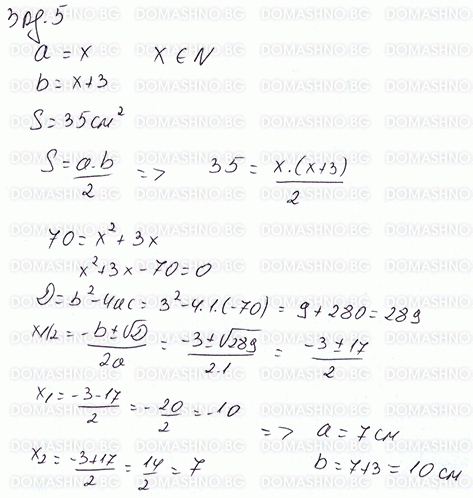 Зад.5
a = x    x ∈ N
b = x+3
S = 35 см²
S = a.b/2 => 35 = x.(x+3)/2
70 = x² + 3x
x² + 3x - 70 = 0
D = b² - 4ac = 3² - 4.1.(-70) = 9 + 280 = 289
x1/2 = -b±√D/2a = -3±√289/2.1 = -3±17/2
x₁ = -3-17/2 = -20/2 = -10
=> a = 7 см
x₂ = -3+17/2 = 14/2 = 7
b = 7+3 = 10 см